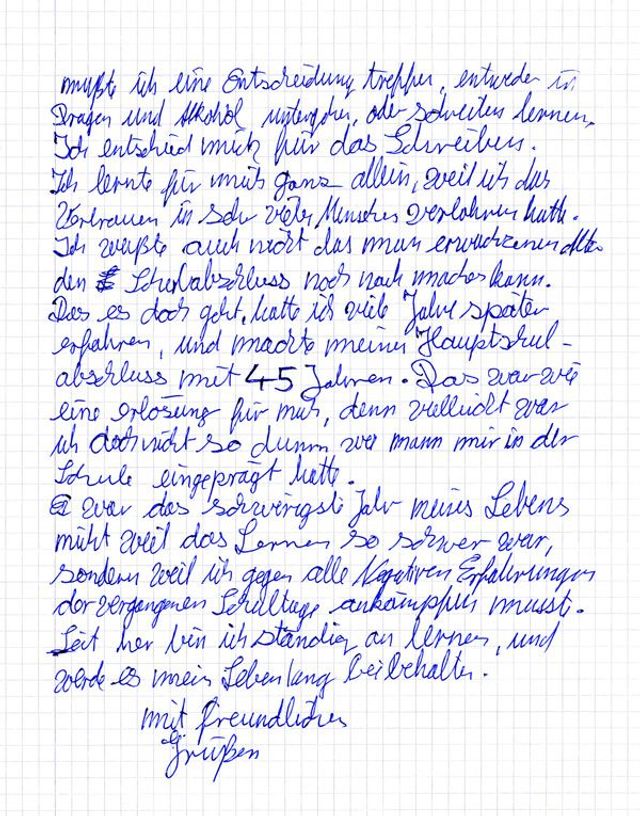 mußte ich eine Entscheidung treffen, entweder in
Drogen und Alkohol, untergehen, oder schreiben lernen.
Ich entschied mich für das Schreiben.
Ich lernte für mich ganz allein, weil ich das
Vertrauen in sehr viele Menschen verlohren hatte.
Ich wußte auch nicht das man im erwachsenen Alter
den Schulabschluss noch nach machen kann.
Das es doch geht, hatte ich viele Jahre später
erfahren, und machte meinen Hauptschul-
abschluss mit 45 Jahren. Das war wie
eine erlösung für mich, denn vielleicht war
ich doch nicht so dumm, wie mann mir in der
Schule eingeprägt hatte.
Es war das schwierigste Jahr meines Lebens
nicht weil das Lernen so schwer war,
sondern weil ich gegen alle Negativen Erfahrungen
der vergangenen Schultage ankämpfen musste.
Seit her bin ich ständig an lernen, und
werde es mein Leben lang beibehalten.
mit freundlichen
Grüßen